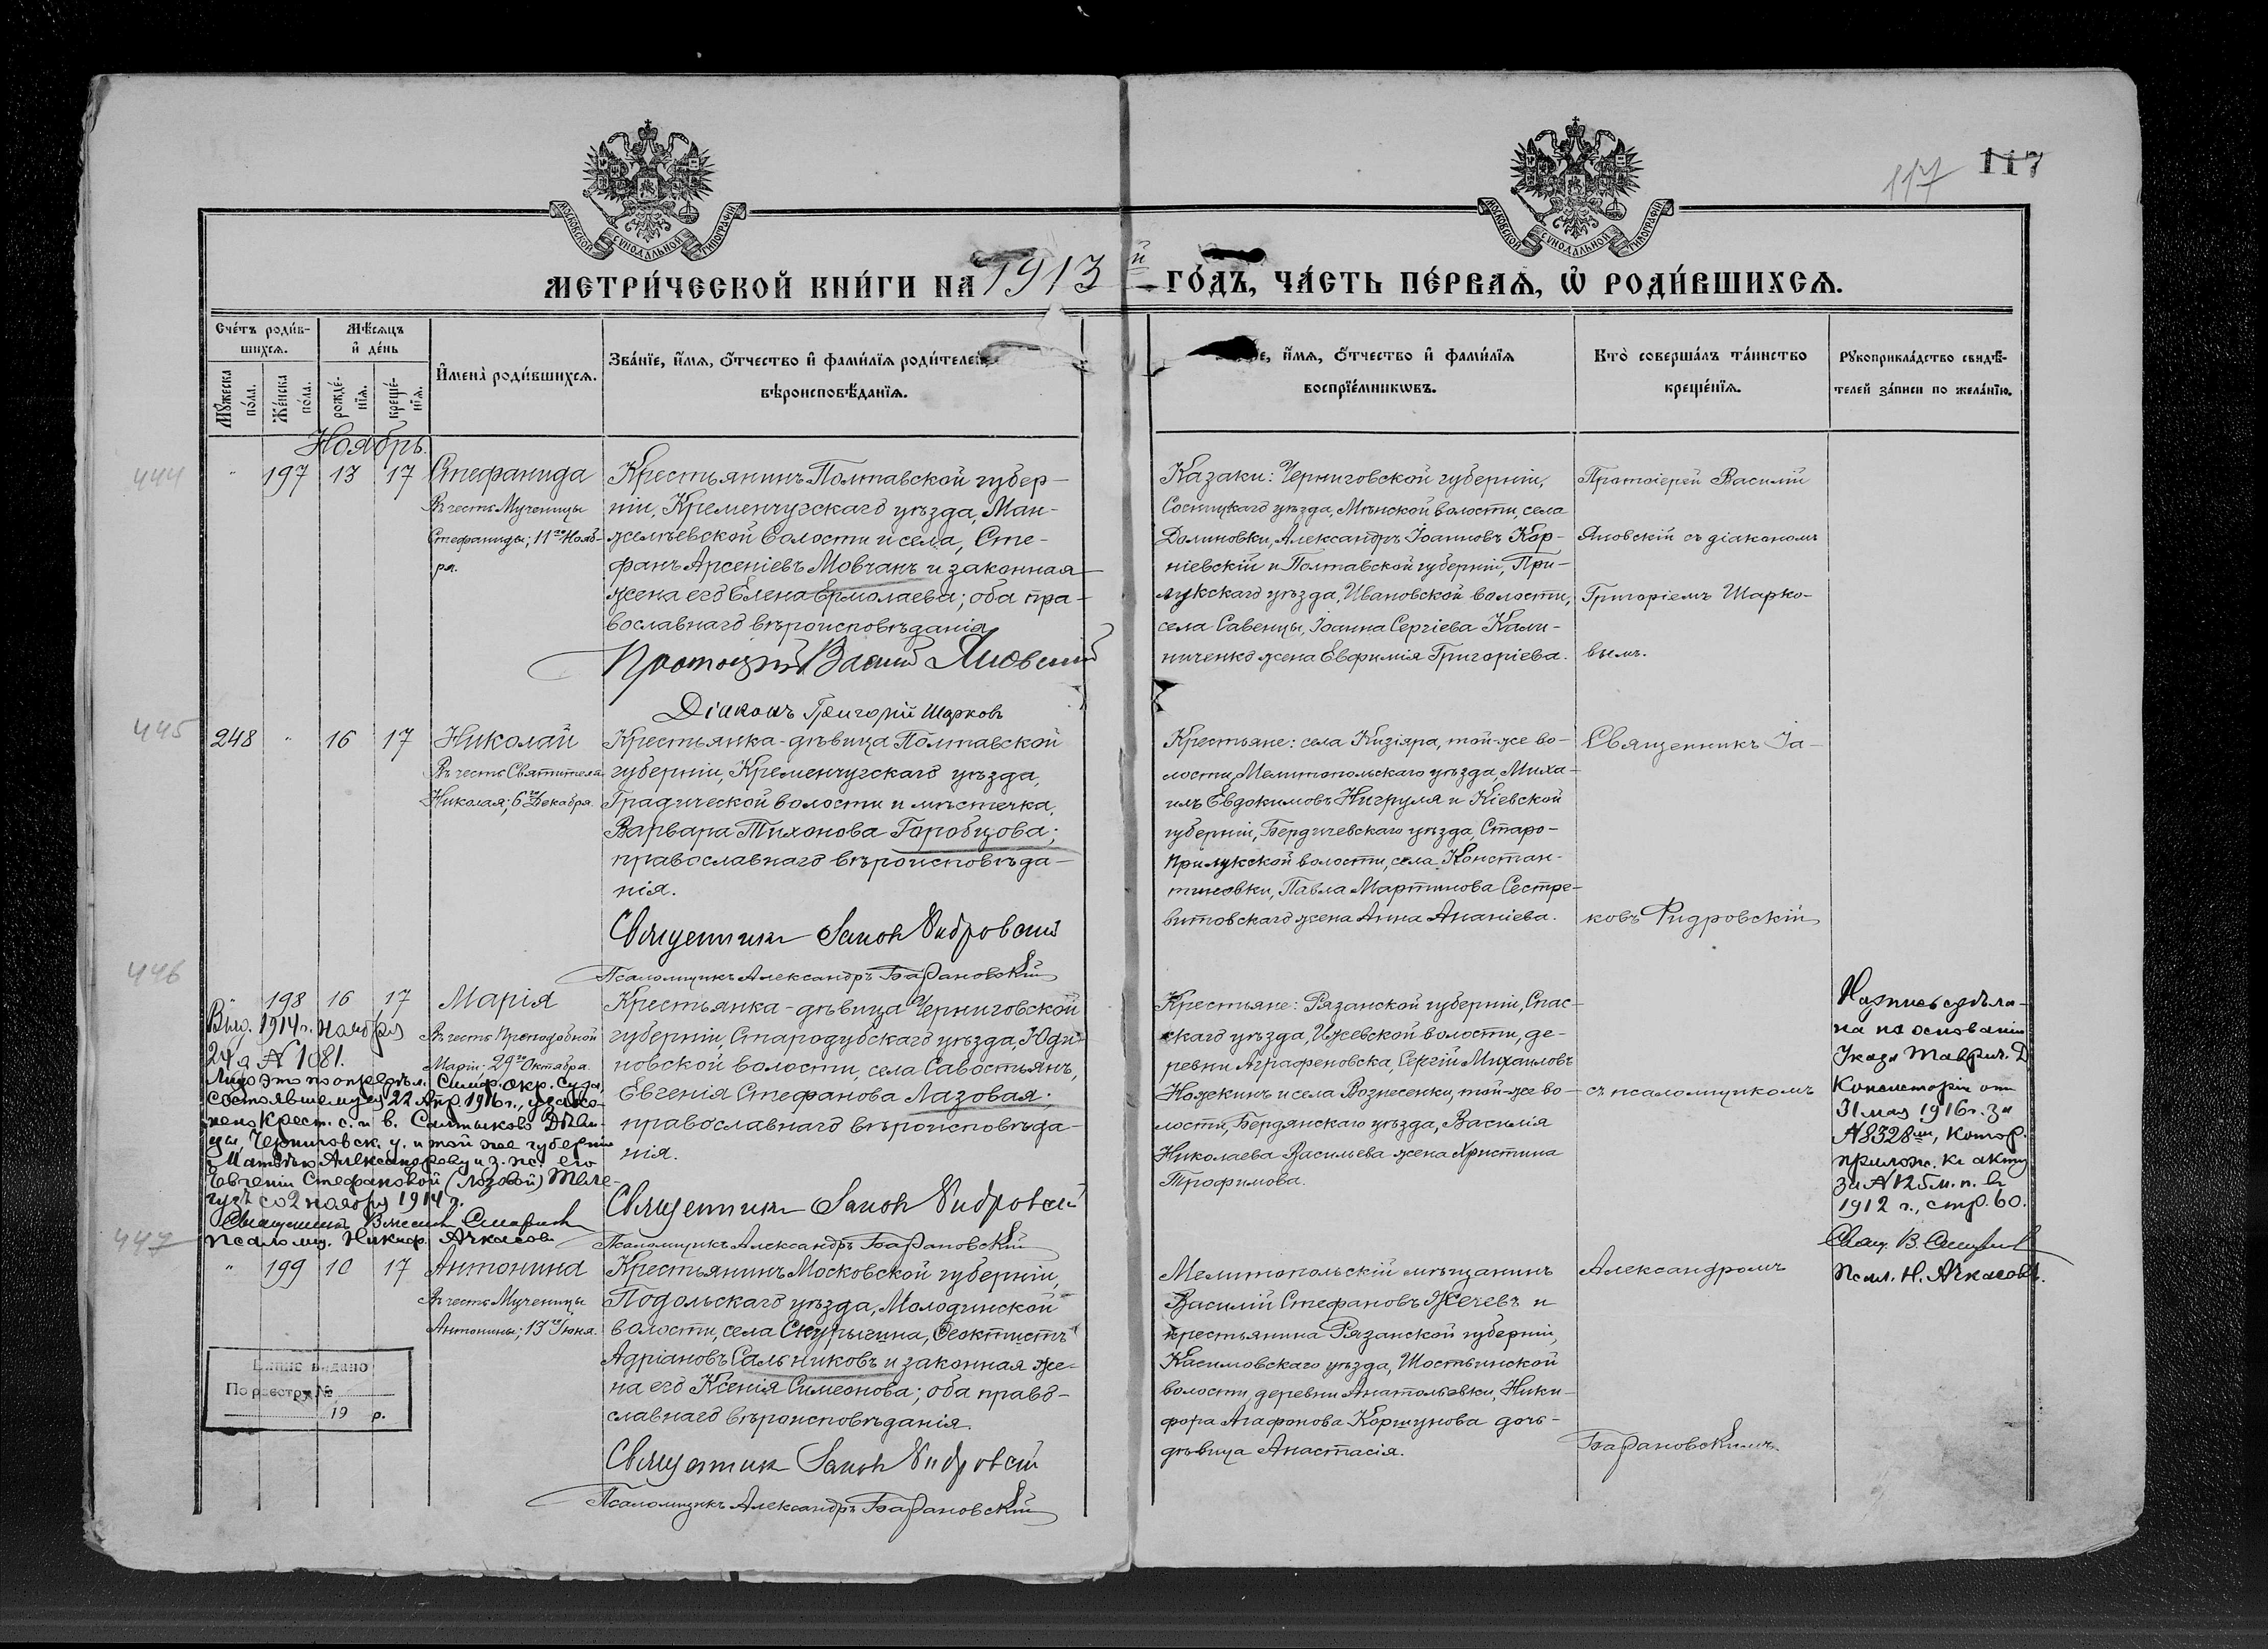 117 117
МОСКОВСКОЙ СѴНОДАЛЬНОЙ ТИПОГРАФІИ
МОСКОВСКОЙ СѴНОДАЛЬНОЙ ТИПОГРАФІИ
МЕТРИ́ЧЕСКОЙ КНИ́ГИ НА 1913 й ГО́ДЪ, ЧА́СТЬ ПЕ́РВАѦ, Ѡ҆ РОДИ́ВШИХСѦ.
Сче́тъ роди́в-
шихсѧ.
Мꙋ́жеска по́ла.
Же́нска по́ла.
Мѣ́сѧцъ
и҆ де́нь
рожде́-
нїѧ.
креще́-
нїѧ.
И҆мена̀ роди́вшихсѧ.
Зва́нїе, и҆́мѧ, ѻ҆́тчество и҆ фами́лїѧ роди́телей,
вѣроисповѣ́данїѧ.
е, и҆́мѧ, ѻ҆́тчество и҆ фами́лїѧ
воспрїе́мникѡвъ.
Кто̀ соверша́лъ та́инство
креще́нїѧ.
Рꙋкоприкла́дство свидѣ́-
телей за́писи по жела́нїю.
Ноябрь.
444
" 197 13 17
Стефанида
Въ честь Мученицы
Стефаниды; 11го Нояб-
ря.
Крестьянинъ Полтавской губер-
ніи, Кременчугскаго уѣзда, Ман-
желѣевской волости и села, Сте-
фанъ Арсеніевъ Мовчанъ и законная
жена его Елена Ермолаева; оба пра-
вославнаго вѣроисповѣданія
Протоіерей Василій Яновский
Діаконъ Григорій Шарковъ
Казаки: Черниговской губерніи,
Сосницкаго уѣзда, Мѣнской волости, села
Долиновки, Александръ Іоанновъ Кор-
ніевскій и Полтавской губерніи, При-
лукскаго уѣзда, Ивановской волости,
села Савенцы, Іоанна Сергіева Кали-
ниченко жена Евфимія Григоріева.
Протоіерей Василій
Яновскій съ діакономъ
Григоріемъ Шарко-
вымъ.
445
248 " 16 17
Николай
Въ честь Святителя
Николая; 6го Декабря.
Крестьянка-дѣвица Полтавской
губерніи, Кременчугскаго уѣзда,
Градической волости и мѣстечка,
Варвара Тихонова Горобцова;
православнаго вѣроисповѣда-
нія.
Священникъ Іаковъ Ѳидровскій
Псаломщикъ Александръ Барановскій
Крестьяне: села Кизіяра, той-же во-
лости, Мелитопольскаго уѣзда, Миха-
илъ Евдокимовъ Нигруля и Кіевской
губерніи, Бердичевскаго уѣзда, Старо-
Прилукской волости, села Констан-
тиновки, Павла Мартинова Сестре-
витовскаго жена Анна Ананіева.
Священникъ Іа-
ковъ Ѳидровскій
446
" 198 16 17
Марія
Въ честь Преподобной
Маріи; 29го Октября.
Выд. 1914 г. ноября
24 д. № 1081.
Лицо это по опредѣл. Симф. окр. Суда,
состоявшемуся 22 Апр. 1916 г., узако-
нено крест. с. и в. Салтыково Дѣви-
цы, Черниговск. у. и той же губерніи
Матвѣю Александрову и з. ж. его
Евгеніи Стефановой (Лозовой) Теле-
гузъ со 2 ноября 1914 г.
Псаломщ. Никиф. Ачкасовъ
Крестьянка-дѣвица Черниговской
губерніи, Стародубскаго уѣзда, Юди-
новской волости, села Савостьянъ,
Евгенія Стефанова Лазовая;
православнаго вѣроисповѣда-
нія.
Священникъ Іаковъ Ѳидровскій
Псаломщикъ Александръ Барановскій
Крестьяне: Рязанской губерніи, Спас-
скаго уѣзда, Ижевской волости, де-
ревни Аграфеновска, Сергій Михаиловъ
Ножкинъ и села Вознесенки, той-же во-
лости, Бердянскаго уѣзда, Василія
Николаева Васильева жена Христина
Трофимова.
съ псаломщикомъ
Надпись сдѣла-
на на основаніи
Указа Таврич. Д.
Консисторіи отъ
31 мая 1916 г. за
№ 8328мъ, котор.
прилож. къ акту
за № 125 м. п. въ
1912 г., стр. 60.
Псал. Н. Ачкасовъ.
447
" 199 10 17
Антонина
Въ честь Мученицы
Антонины; 13го Іюня.
Крестьянинъ Московской губерніи,
Подольскаго уѣзда, Молодинской
волости, села Скурыгина, Ѳеоктистъ
Адріановъ Сальниковъ и законная же-
на его Ксенія Симеонова; оба право-
славнаго вѣроисповѣданія.
Священникъ Іаковъ Ѳидровскій
Псаломщикъ Александръ Барановскій
Мелитопольскій мѣщанинъ
Василій Стефановъ Жечевъ и
крестьянина Рязанской губерніи,
Касимовскаго уѣзда, Шостьинской
волости, деревни Анатольевки, Ники-
фора Агафонова Коршунова дочь-
дѣвица Анастасія.
Александромъ
Барановскимъ.
видано
По реестру №
19 р.